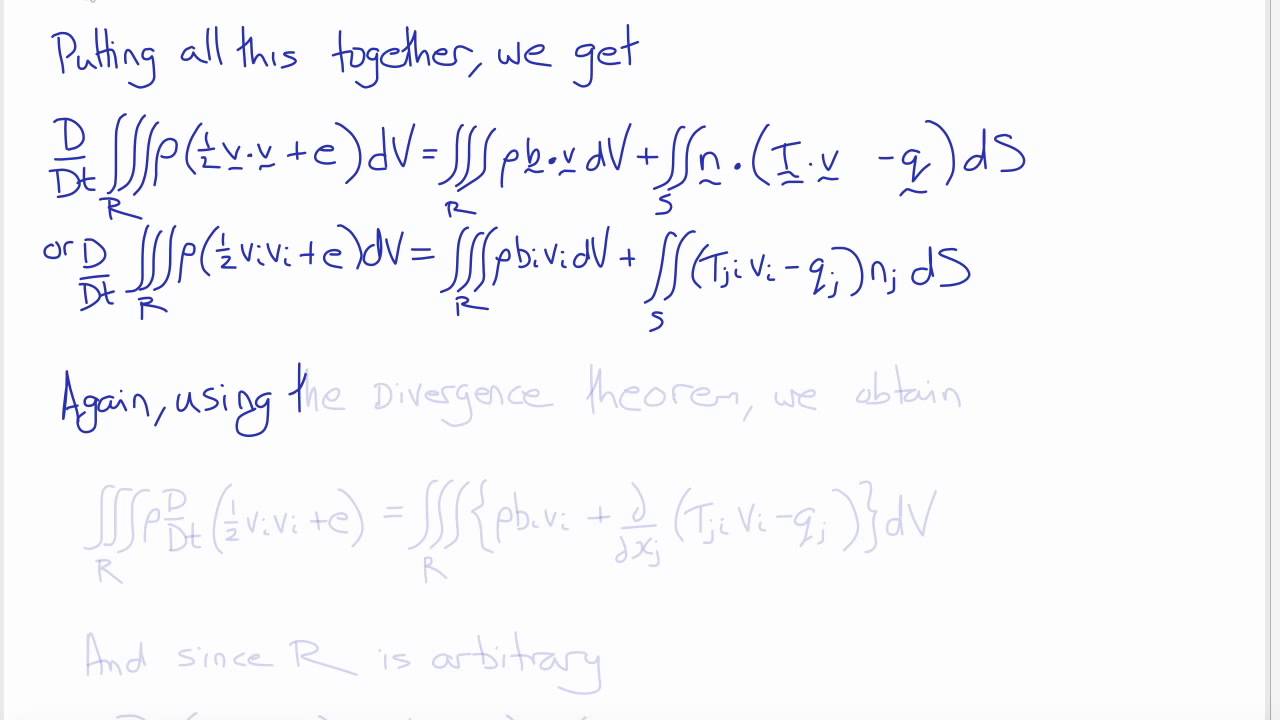 Putting all this together, we get
D/Dt ∭_R ρ(½ v̰·v̰ + e) dV = ∭_R ρ b̰·v̰ dV + ∬_S n̰·(T̰·v̰ - q̰) dS
or D/Dt ∭_R ρ(½ vᵢvᵢ + e) dV = ∭_R ρbᵢvᵢ dV + ∬_S (Tⱼᵢvᵢ - qⱼ)nⱼ dS
Again, using the Divergence theorem, we obtain
∭_R ρ D/Dt (½ vᵢvᵢ + e) = ∭_R {ρbᵢvᵢ + ∂/∂xⱼ (Tⱼᵢvᵢ - qⱼ)} dV
And since R is arbitrary